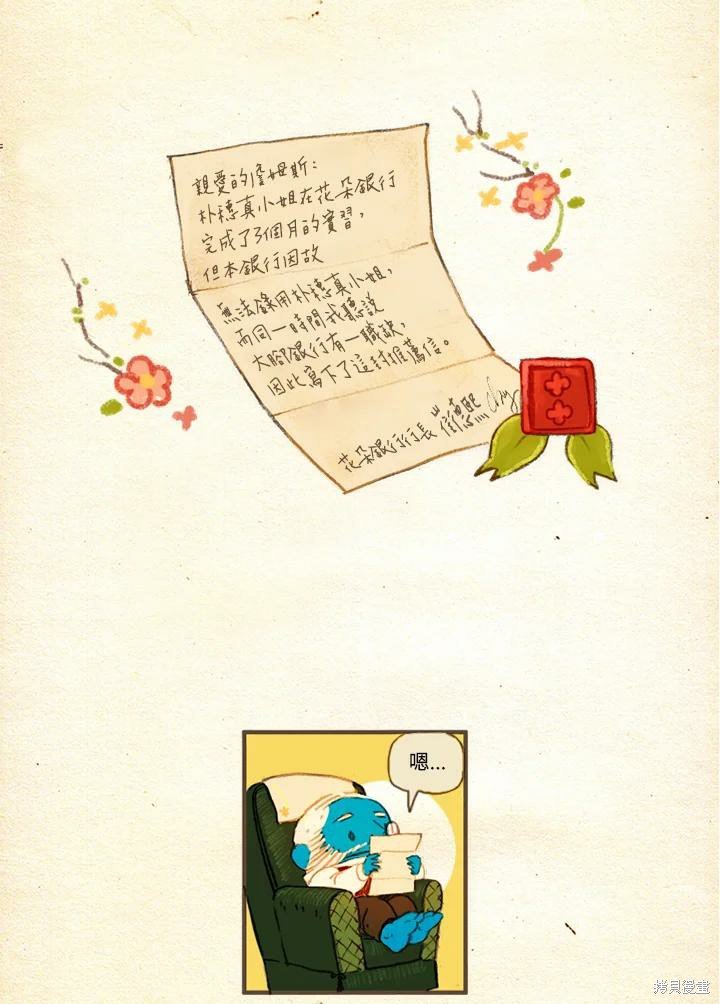 親愛的詹姆斯：
朴穗真小姐在花朵銀行
完成了3個月的實習，
但本銀行因故
無法錄用朴穗真小姐，
而同一時間我聽說
大腳銀行有一職缺，
因此寫下了這封推薦信。
花朵銀行行長 崔
嗯...
拷貝漫畫